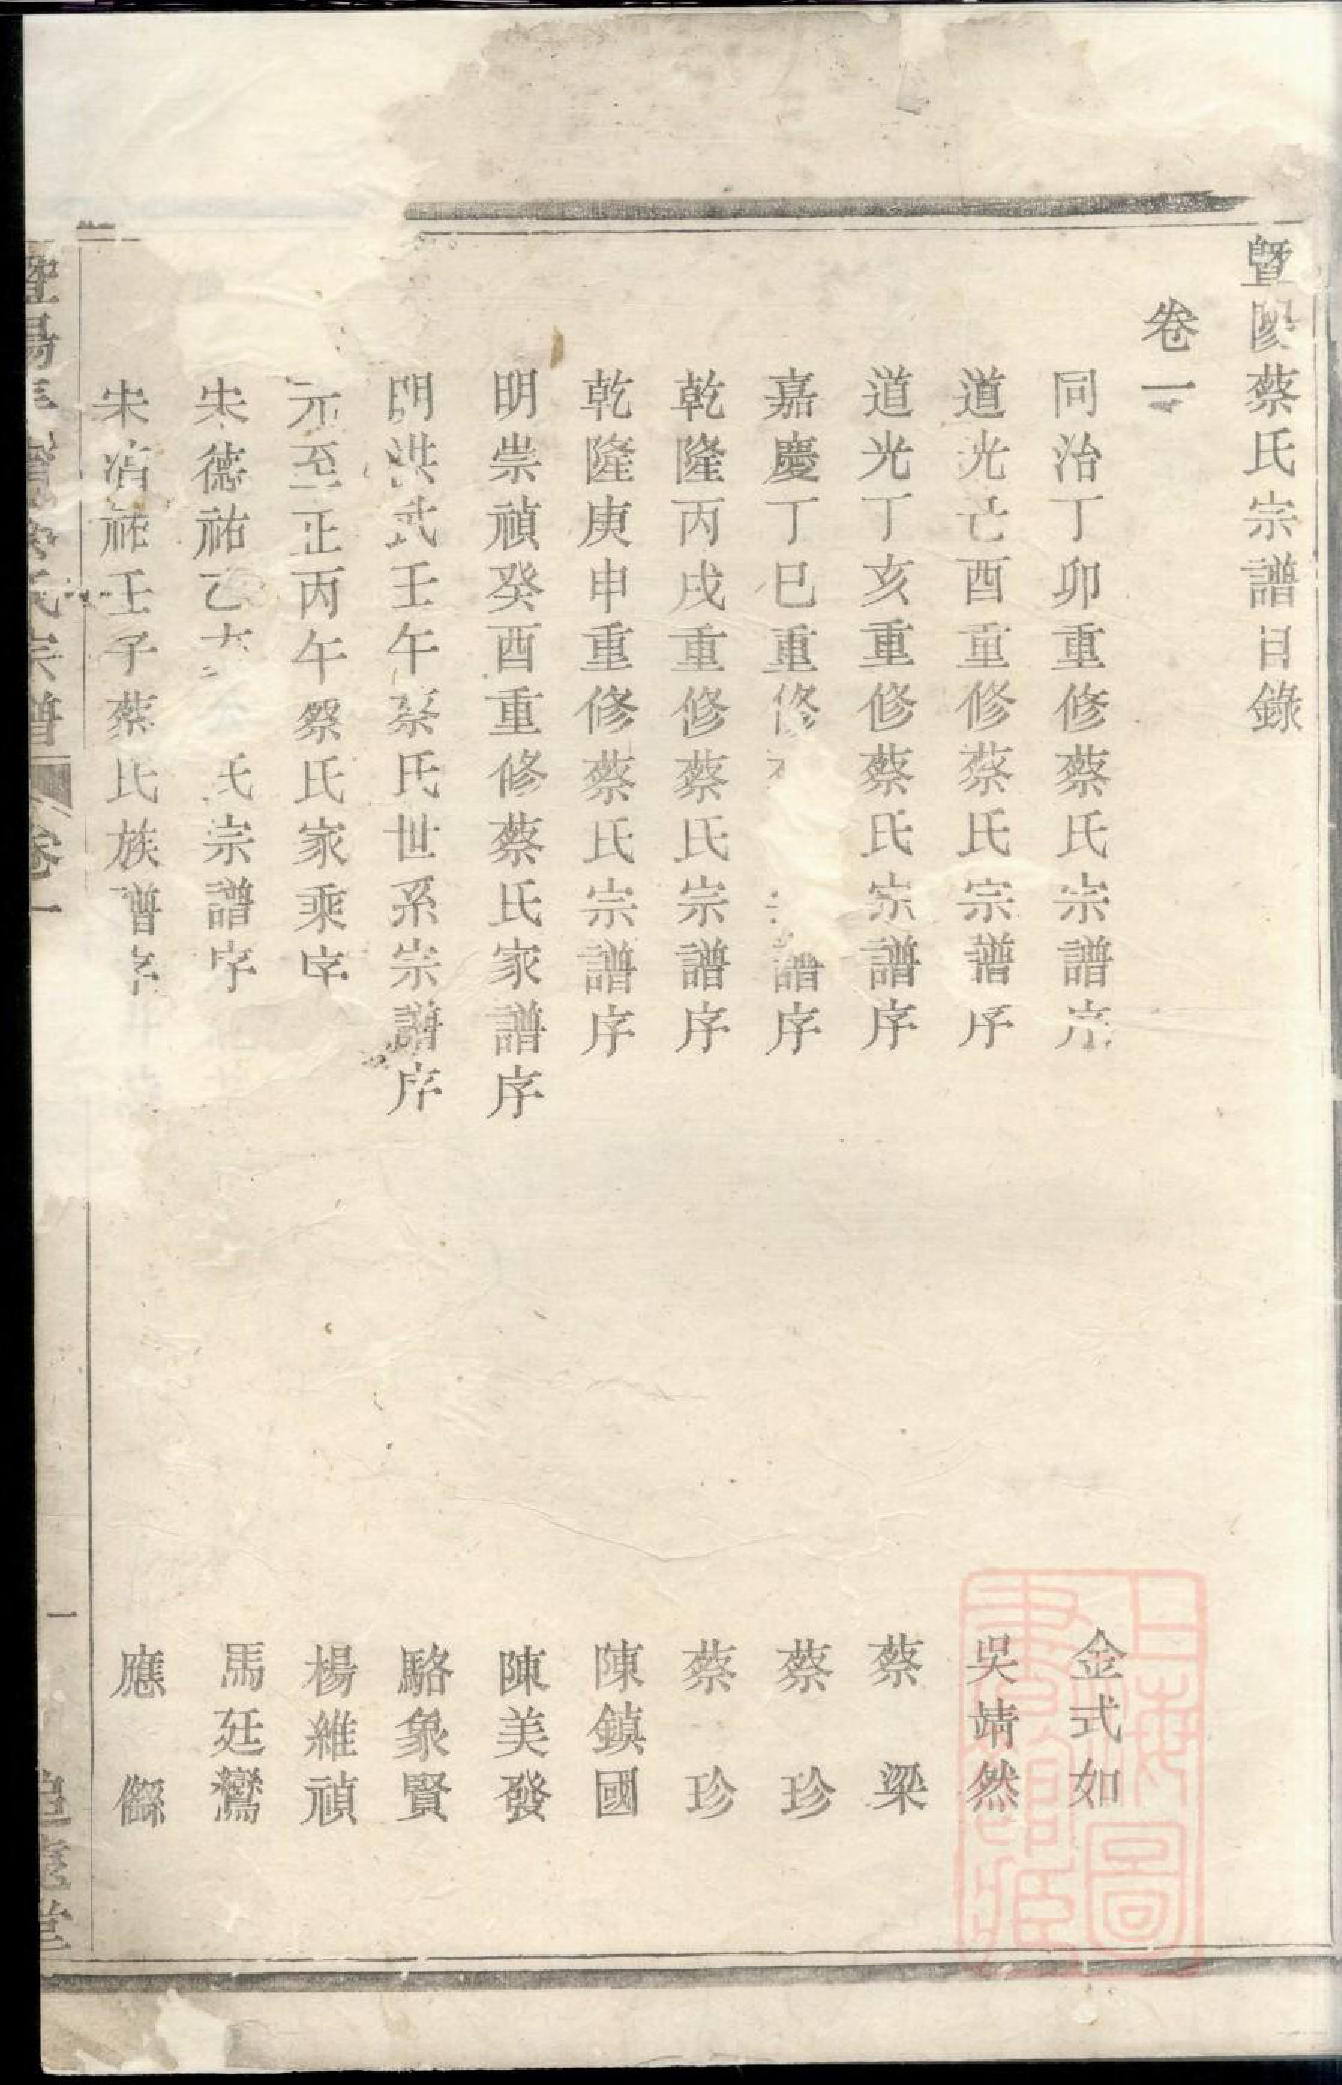 暨陽蔡氏宗譜目錄
卷一
同治丁卯重修蔡氏宗譜序 金式如
道光己酉重修蔡氏宗譜序 吳靖然
道光丁亥重修蔡氏宗譜序 蔡梁
嘉慶丁巳重修 譜序 蔡珍
乾隆丙戌重修蔡氏宗譜序 蔡珍
乾隆庚申重修蔡氏宗譜序 陳鎮國
明崇禎癸酉重修蔡氏家譜序 陳美發
明洪武壬午蔡氏世系宗譜序 駱象賢
元至正丙午蔡氏家乘序 楊維禎
宋德祐乙亥 氏宗譜序 馬廷鸞
宋淳祐壬子蔡氏族譜序 應㒡
氏宗譜 卷一 一 堂
上海圖書館藏